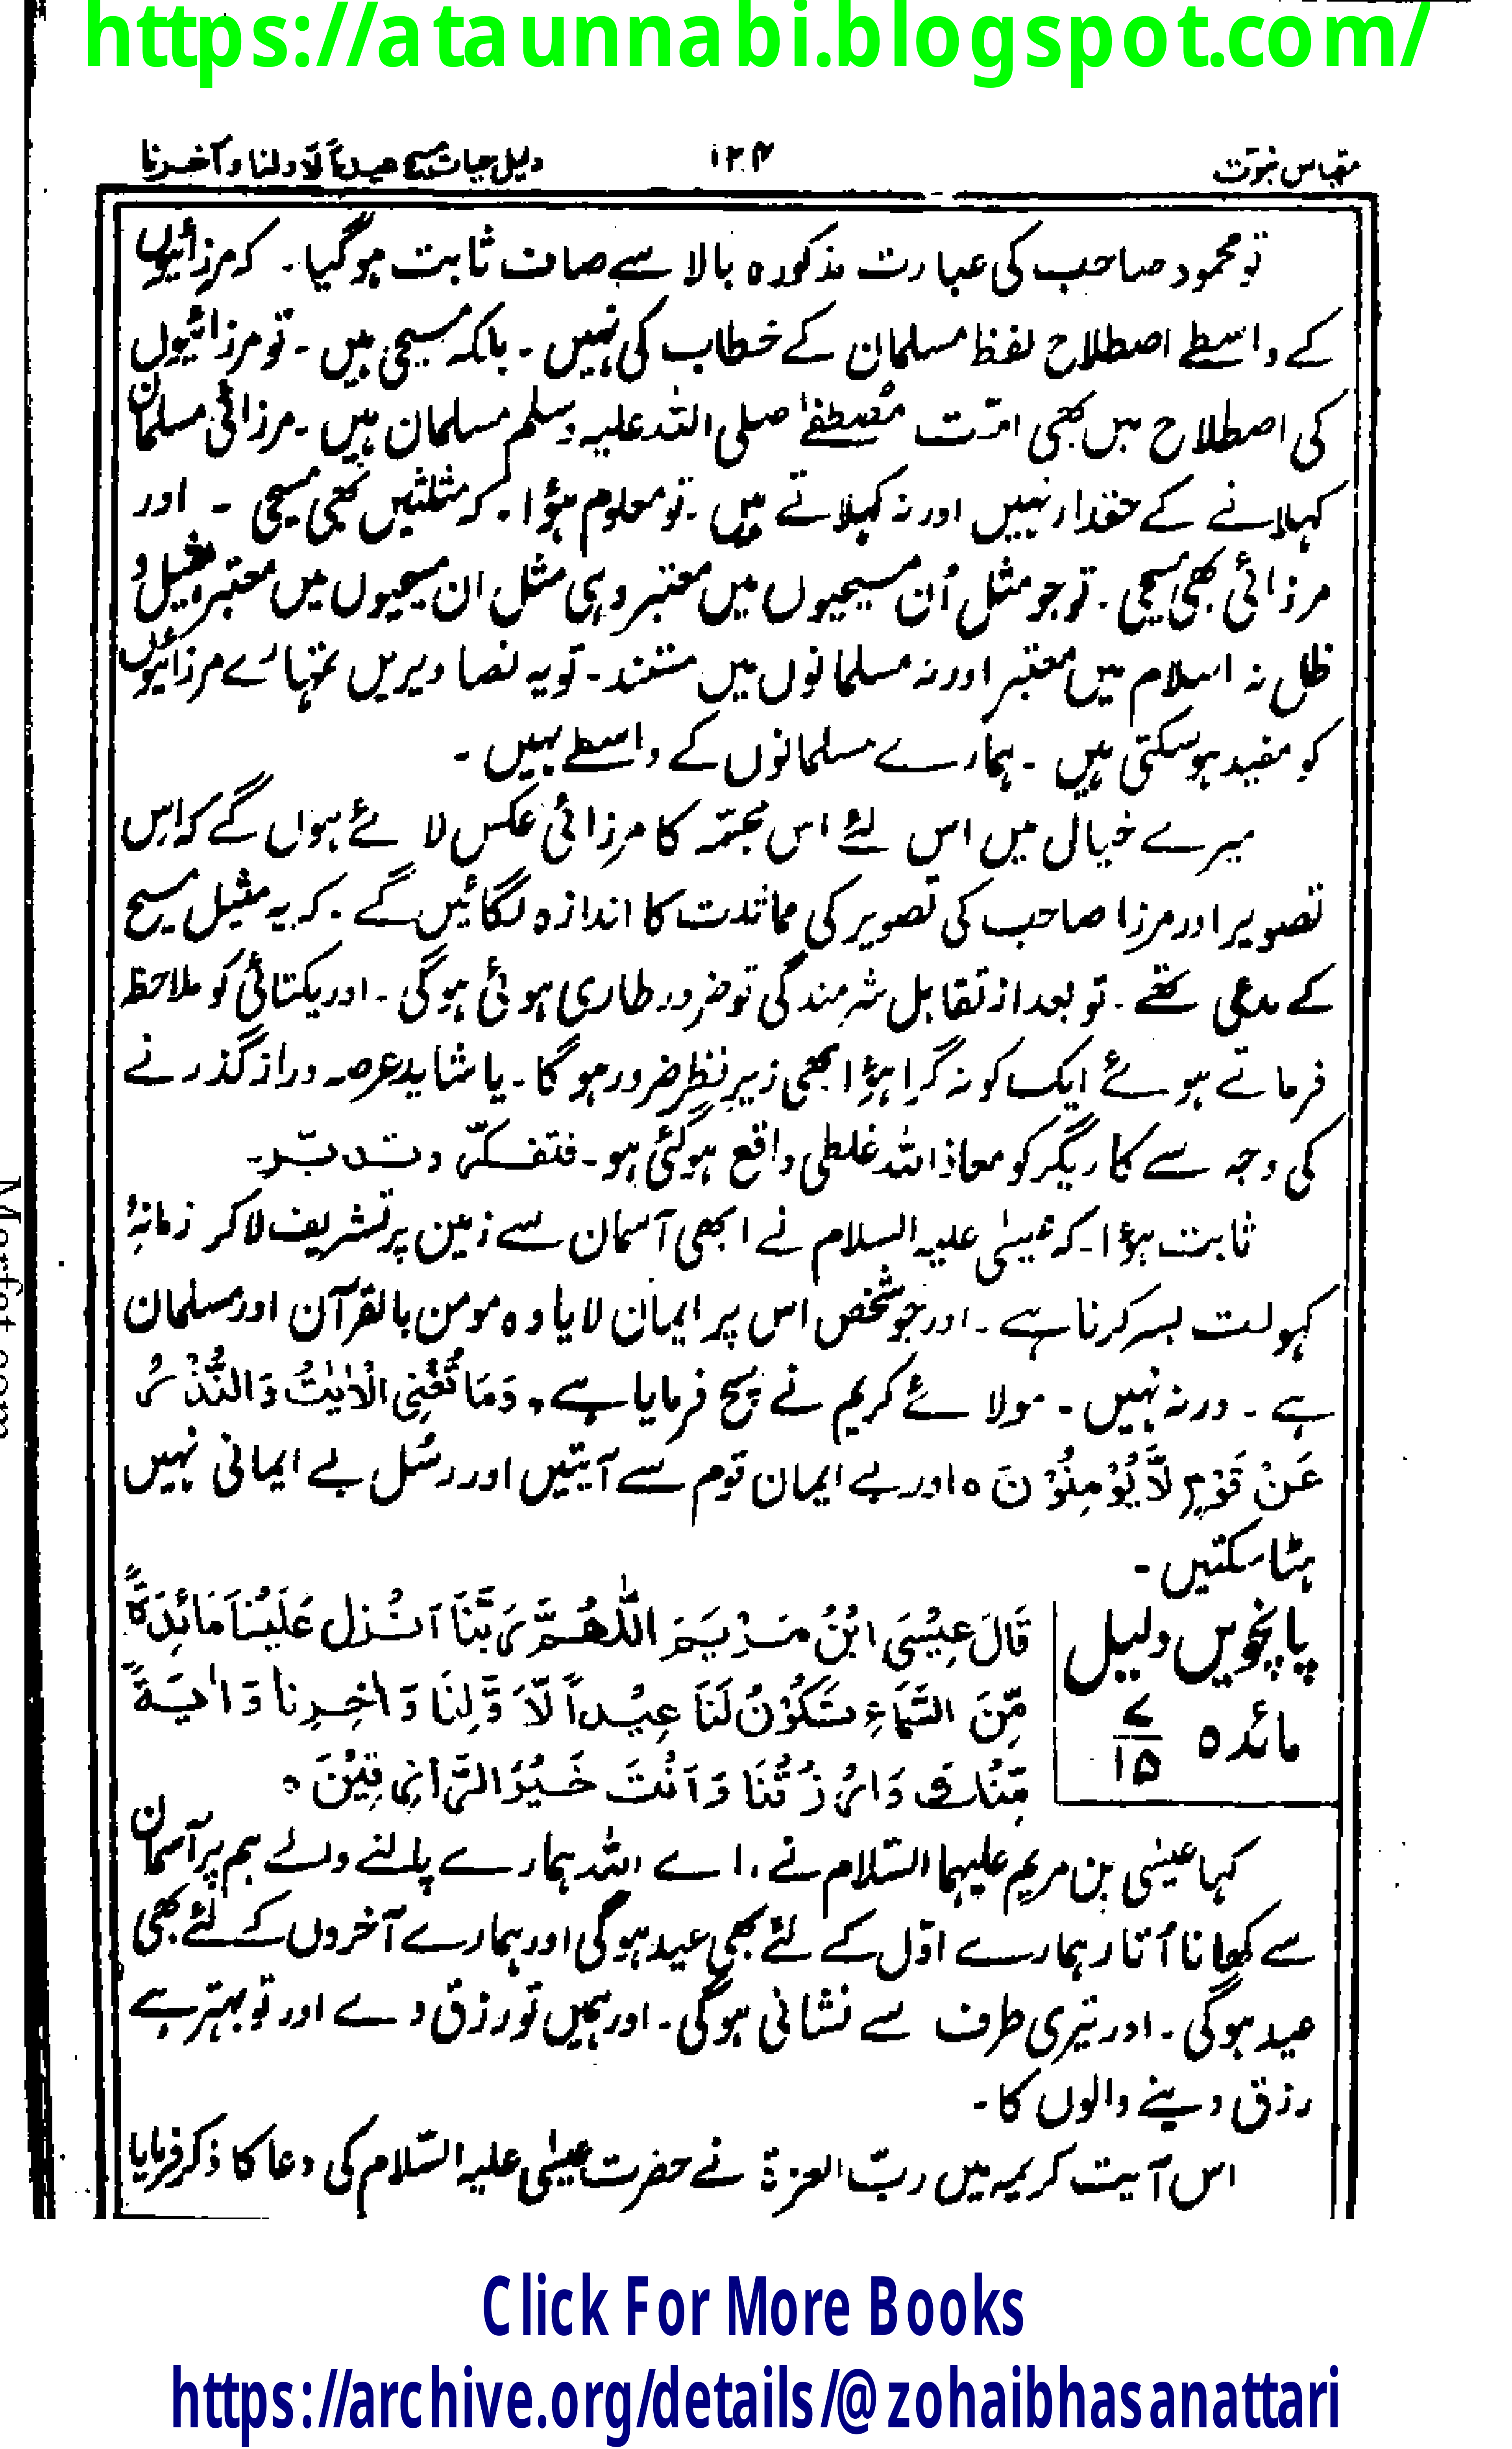 https://ataunnabi.blogspot.com/
مقیاس نبوت ۱۲۴ دلیل حیات مسیح عیداً لاولنا و آخرنا
تو محمود صاحب کی عبارت مذکورہ بالا سے صاف ثابت ہو گیا۔ کہ مرزائیوں
کے واسطے اصطلاح لفظ مسلمان کے خطاب کی نہیں۔ بلکہ مسیحی ہیں۔ تو مرزائیوں
کی اصطلاح میں بھی امّت مُصطفےٰ صلی اللہ علیہ وسلم مسلمان ہیں۔ مرزائی مسلمان
کہلانے کے حقدار نہیں اور نہ کہلاتے ہیں۔ تو معلوم ہؤا۔ کہ مثلثیں بھی مسیحی ۔ اور
مرزائی بھی مسیحی۔ تو جو مثل اُن مسیحیوں میں معتبر وہی مثل ان مسیحیوں میں معتبر، مثیل و
ظل نہ اسلام میں معتبر اور نہ مسلمانوں میں مستند۔ تو یہ تصاویریں تمہارے مرزائیوں
کو مفید ہو سکتی ہیں ۔ ہمارے مسلمانوں کے واسطے نہیں ۔
میرے خیال میں اس لئے اس مجسّمہ کا مرزائی عکس لائے ہوں گے کہ اِس
تصویر اور مرزا صاحب کی تصویر کی مماثلت کا اندازہ لگائیں گے ۔ کہ یہ مثیل مسیح
کے مدعی تھے ۔ تو بعد از تقابل شرمندگی تو ضرور طاری ہوئی ہو گی ۔ اور یکتائی کو ملاحظہ
فرماتے ہوئے ایک کو نہ گرا ہؤا بھی زیرِ نظر ضرور ہو گا۔ یا شاید عرصہ دراز گذرنے
کی وجہ سے کاریگر کو معاذ اللہ غلطی واقع ہو گئی ہو۔ فتفکّر و تدبّر۔
ثابت ہؤا۔ کہ عیسٰی علیہ السلام نے ابھی آسمان سے زمین پر تشریف لا کر زمانۂ
کہولت بسر کرنا ہے ۔ اور جو شخص اس پر ایمان لایا وہ مومن بالقرآن اور مسلمان
ہے ۔ ورنہ نہیں ۔ مولائے کریم نے سچ فرمایا ہے، وَمَا تُغْنِی الْاٰیٰتُ وَالنُّذُرُ
عَنْ قَوْمٍ لَّا یُؤْمِنُوْنَ ہ اور بے ایمان قوم سے آیتیں اور رسُل بے ایمانی نہیں
ہٹا سکتیں ۔
پانچویں دلیل
مائدہ ۷/۱۵
قَالَ عِیْسَی ابْنُ مَرْیَمَ اللّٰھُمَّ رَبَّنَا اَنْزِل عَلَیْنَا مَائِدَۃً
مِّنَ السَّمَاءِ تَکُوْنُ لَنَا عِیْداً لِّاَوَّلِنَا وَاٰخِرِنا وَاٰیَۃً
مِّنْكَ وَارْزُقْنَا وَاَنْتَ خَیْرُ الرَّازِقِیْنَ ہ
کہا عیسٰی بن مریم علیہما السّلام نے، اے اللہ ہمارے پالنے والے ہم پر آسمان
سے کھانا اُتار ہمارے اوّل کے لئے بھی عید ہو گی اور ہمارے آخروں کے لئے بھی
عید ہو گی ۔ اور تیری طرف سے نشانی ہو گی ۔ اور ہمیں تو رزق دے اور تو بہتر ہے
رزق دینے والوں کا ۔
اس آیت کریمہ میں ربّ العزۃ نے حضرت عیسٰی علیہ السّلام کی دعا کا ذکر فرمایا
Marfat.com
Click For More Books
https://archive.org/details/@zohaibhasanattari